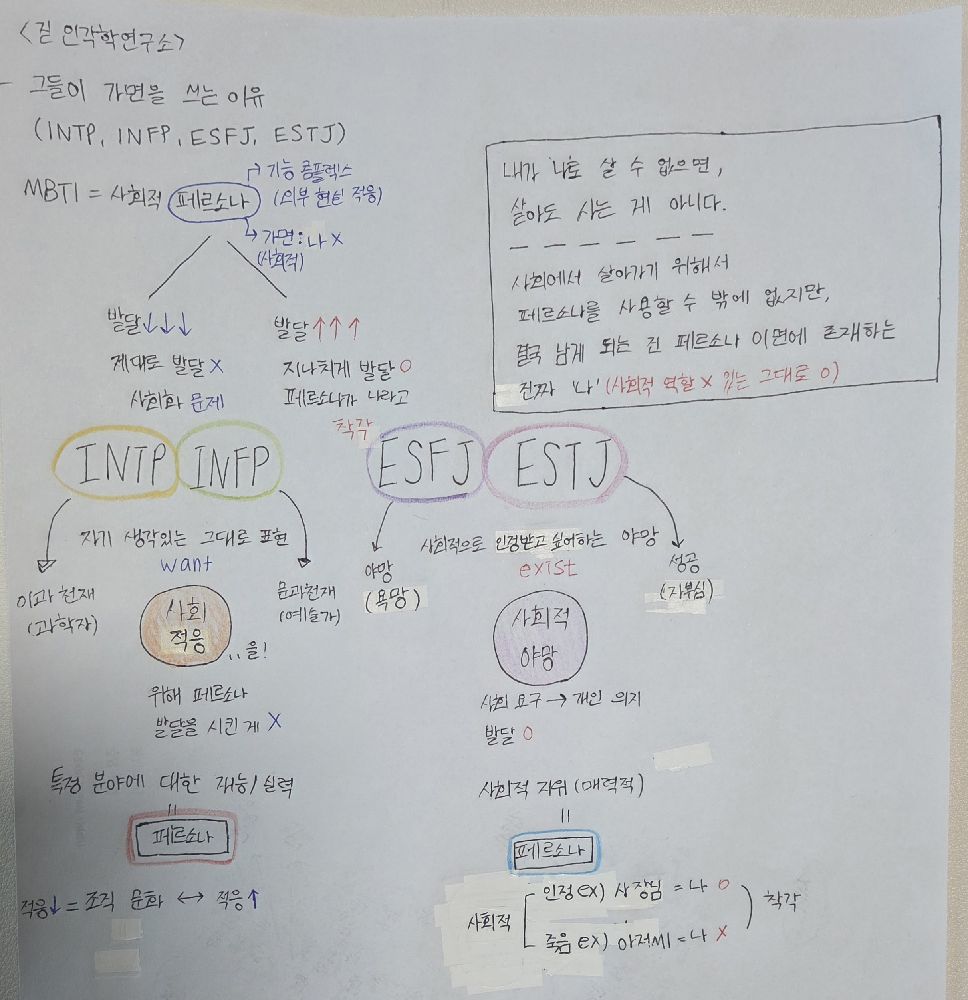 <길 인각학연구소>
- 그들이 가면을 쓰는 이유
(INTP, INFP, ESFJ, ESTJ)
MBTI = 사회적 페르소나
→ 기능 콤플렉스
(외부 현실 적응)
→ 가면 : 나 X
(사회적)
내가 '나'로 살 수 없으면,
살아도 사는 게 아니다.
사회에서 살아가기 위해서
페르소나를 사용할 수 밖에 없지만,
결국 남게 되는 건 페르소나 이면에 존재하는
진짜 '나' (사회적 역할 X 있는 그대로 O)
발달↓↓↓
제대로 발달 X
사회화 문제
발달↑↑↑
지나치게 발달 O
페르소나가 나라고
착각
INTP INFP ESFJ ESTJ
자기 생각있는 그대로 표현
want
이과천재
(과학자)
사회
적응
..을!
문과천재
(예술가)
위해 페르소나
발달을 시킨 게 X
특정 분야에 대한 재능/실력
=
페르소나
적응↓ = 조직 문화 ↔ 적응↑
사회적으로 인정받고 싶어하는 야망
exist
야망
(욕망)
사회적
야망
성공
(자부심)
사회 요구 → 개인 의지
발달 O
사회적 지위 (매력적)
=
페르소나
사회적
인정 ex) 사장님 = 나 O
죽음 ex) 아저씨 = 나 X
착각